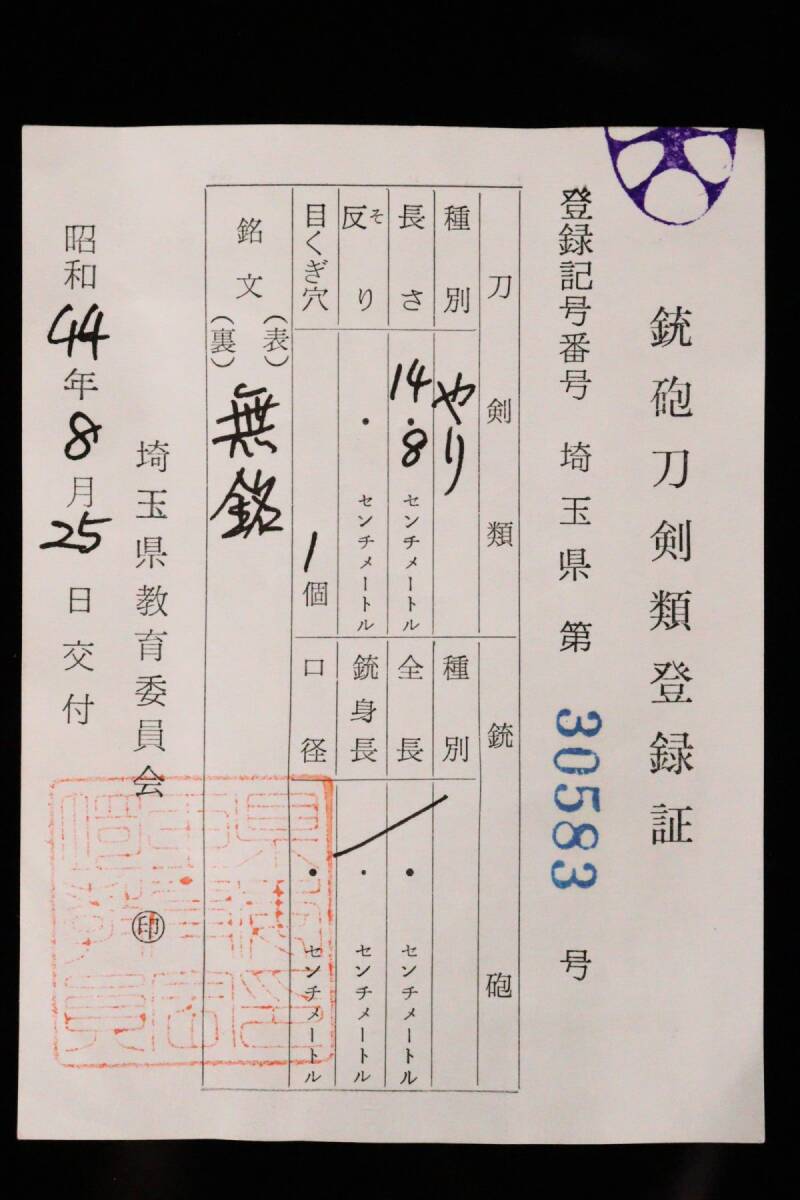 銃砲刀剣類登録証
登録記号番号 埼玉県 第 30583 号
刀剣類
種別 やり
長さ 14.8 センチメートル
反り そ ・ センチメートル
目くぎ穴 1 個
銃砲
種別
全長 ・ センチメートル
銃身長 ・ センチメートル
口径 ・ センチメートル
銘文 (表) (裏) 無銘
埼玉県教育委員会 ㊞
昭和 44 年 8 月 25 日交付